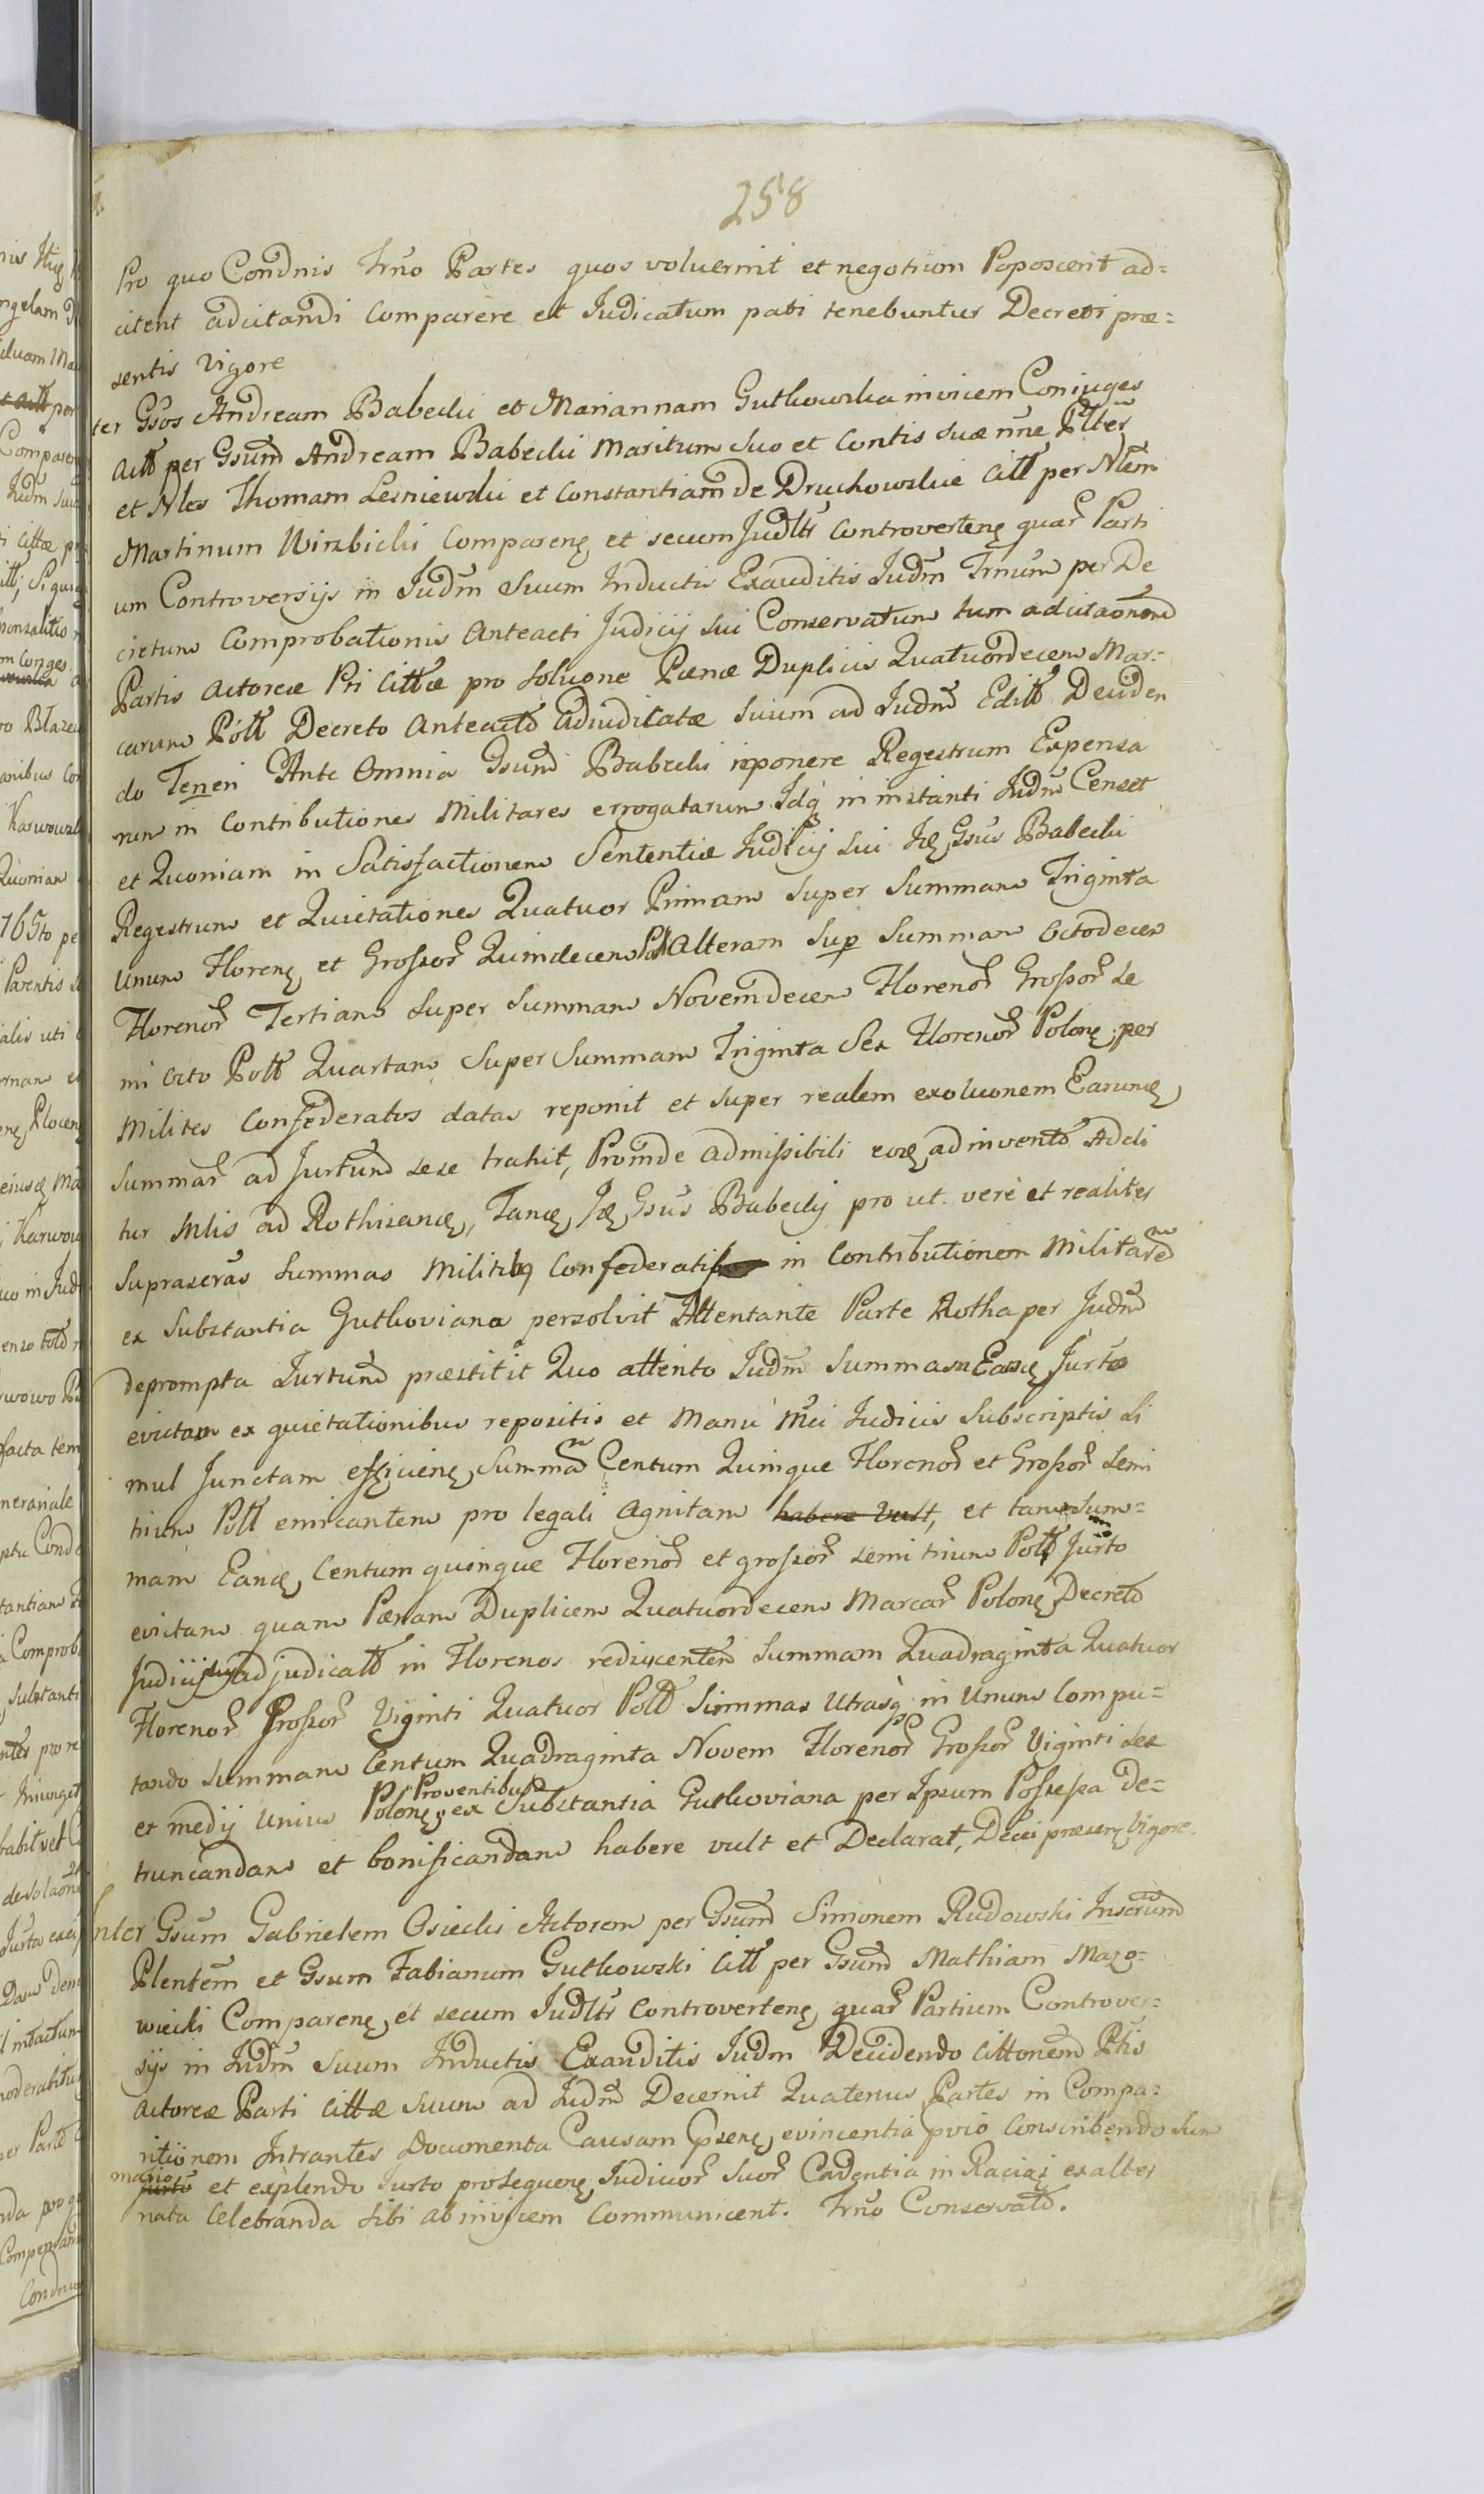 258
Pro quo Condnis Trno Partes quos voluerint et negotium Poposcerit ad=
citent adcitandi Comparere et Judicatum pati tenebuntur Decreti præ=
sentis Vigore
ter Gsos Andream Babecki et Mariannam Gutkowska invicem Coniuges
Actt per Gsum Andream Babecki Maritum Suo et Contis suæ nne Plter
et Nles Thomam Lesniewski et Constantiam de Druchowskie Citt per Nlem
Martinum Wirzbicki Comparen, et secum Judltr Controverten, quar Parti
um Controversijs in Judm Suum Inductis Exauditis Judm Trnum per De
cretum Comprobationis Anteacti Judicij sui Conservatum tum adcitaonem
Partis Actoreæ Pti Cittæ pro Solvone Pænæ Duplicis Quatuordecem Mar=
carum Poll Decreto Anteacto Adiudicatæ Suum ad Judm Editt Deciden
do Teneri Ante Omnia Gsum Babecki reponere Regestrum Expensa
rum in Contributiones Militares errogatarum Idq in instanti Judm Censet
et Quoniam in Satisfactionem Sententiæ Judicij sui Id, Gsus Babecki
Regestrum et Quietationes Quatuor Primam super Summam Triginta
Unum Floren, et Grossor Quindecem Poll Alteram Sup Summam Octodecem
Florenor Tertiam Super Summam Novemdecem Florenor Grossor Se
mi Octo Poll Quartam Super Summam Triginta Sex Florenor Polon, per
Milites Confederatos datas reponit et super realem exolvonem Earund,
Summar ad Jurtum sese trahit, Proinde admissibili eod, ad invento Addi
tur Mlis ad Rothizand, Tand, Id, Gsus Babecki pro ut vere et realiter
Suprascras Summas Militib9 Confederatis in Contributionem Militarem
ex Substantia Gutkoviana persolvit Attentante Parte Rotha per Judm
deprompta Jurtum præstitit Quo attento Judm Summam Eand, Jurto
evictam ex quietationibus repositis et Manu Mei Judicis Subscriptis Si
mul Junctam efficien, Summam Centum Quinque Florenor et Grossor Semi
trium Poll emicantem pro legali Agnitam habere vult, et tam Sum=
mam Eand, Centum quinque Florenor et grossor semi trium Poll Jurto
evictam quam Pænam Duplicem Quatuordecem Marcar Polon, Decreto
Judicij sui adjudicatt in Florenos rediscentem Summam Quadraginta Quatuor
Florenor Grossor Viginti Quatuor Poll Summas Utrasq in Unum Compu=
tando Summam Centum Quadraginta Novem Florenor Grossor Viginti Sex
et medij Unius Polon, Proventibus ex Substantia Gutkoviana per Ipsum Possessa De=
truncandam et bonificandam habere vult et Declarat, Decri præsen, Vigore.
Inter Gsum Gabrielem Osiecki Actorem per Gsum Simonem Rudowski Inscrum
Plentem et Gsum Fabianum Gutkowski Citt per Gsum Mathiam Mazo=
wiecki Comparen, et secum Judltr Controverten, quar Partium Controver=
sijs in Judm Suum Inductis Exauditis Judm Decidendo Cittonem Ptis
Actoreæ Parti Cittæ Suum ad Judm Decernit Quatenus Partes in Compa=
ritionem Intrantes Documenta Causam Psen, evincentia pvio Conscribendo Sum
mario Jurto et explendo Jurto prosequen, Judicior Suor Cadentia in Raciąż exalter
nata Celebranda Sibi abinvicem Communicent. Trno Conservato.